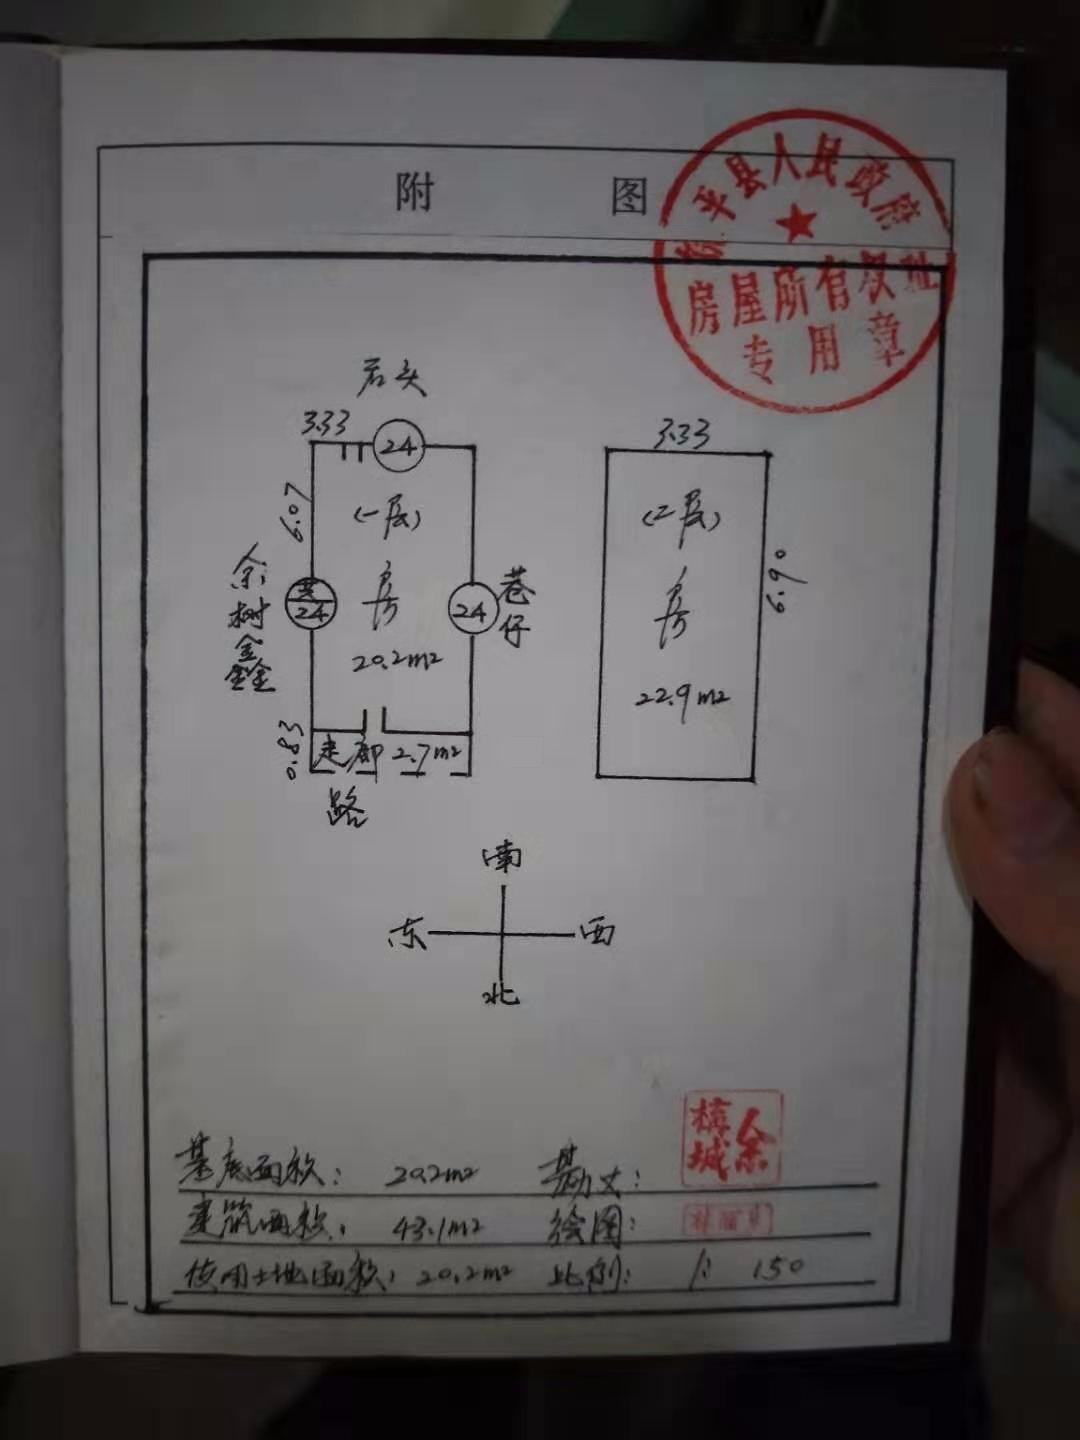 附 图
平县人民政府
房屋所有权证
专用章
石头
3.33
24
6.07
(一层)
房
20.2m2
余树鑫
共
24
24
巷仔
0.83
走廊 2.7m2
路
3.33
(2层)
房
22.9m2
6.90
南
东 西
北
基底面积: 20.2m2 勘丈:
余
城
建筑面积: 43.1m2 绘图:
使用土地面积: 20.2m2 比例: 1:150